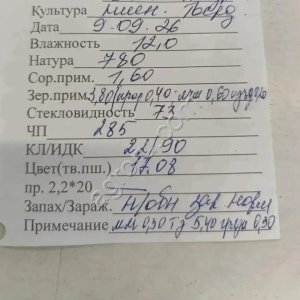 Культура пшен. Тв7рд
Дата 9.09.26
Влажность 12,0
Натура 780
Сор.прим. 1,60
Зер.прим 3,80 (прор 0,40 0,60
Стекловидность 73
ЧП 285
КЛ/ИДК 22/90
Цвет(тв.пш.) 17.08
пр. 2,2*20
Запах/Зараж. н/обн зап норм
Примечание мм 0,30 Тз 5,40 груб 0,30